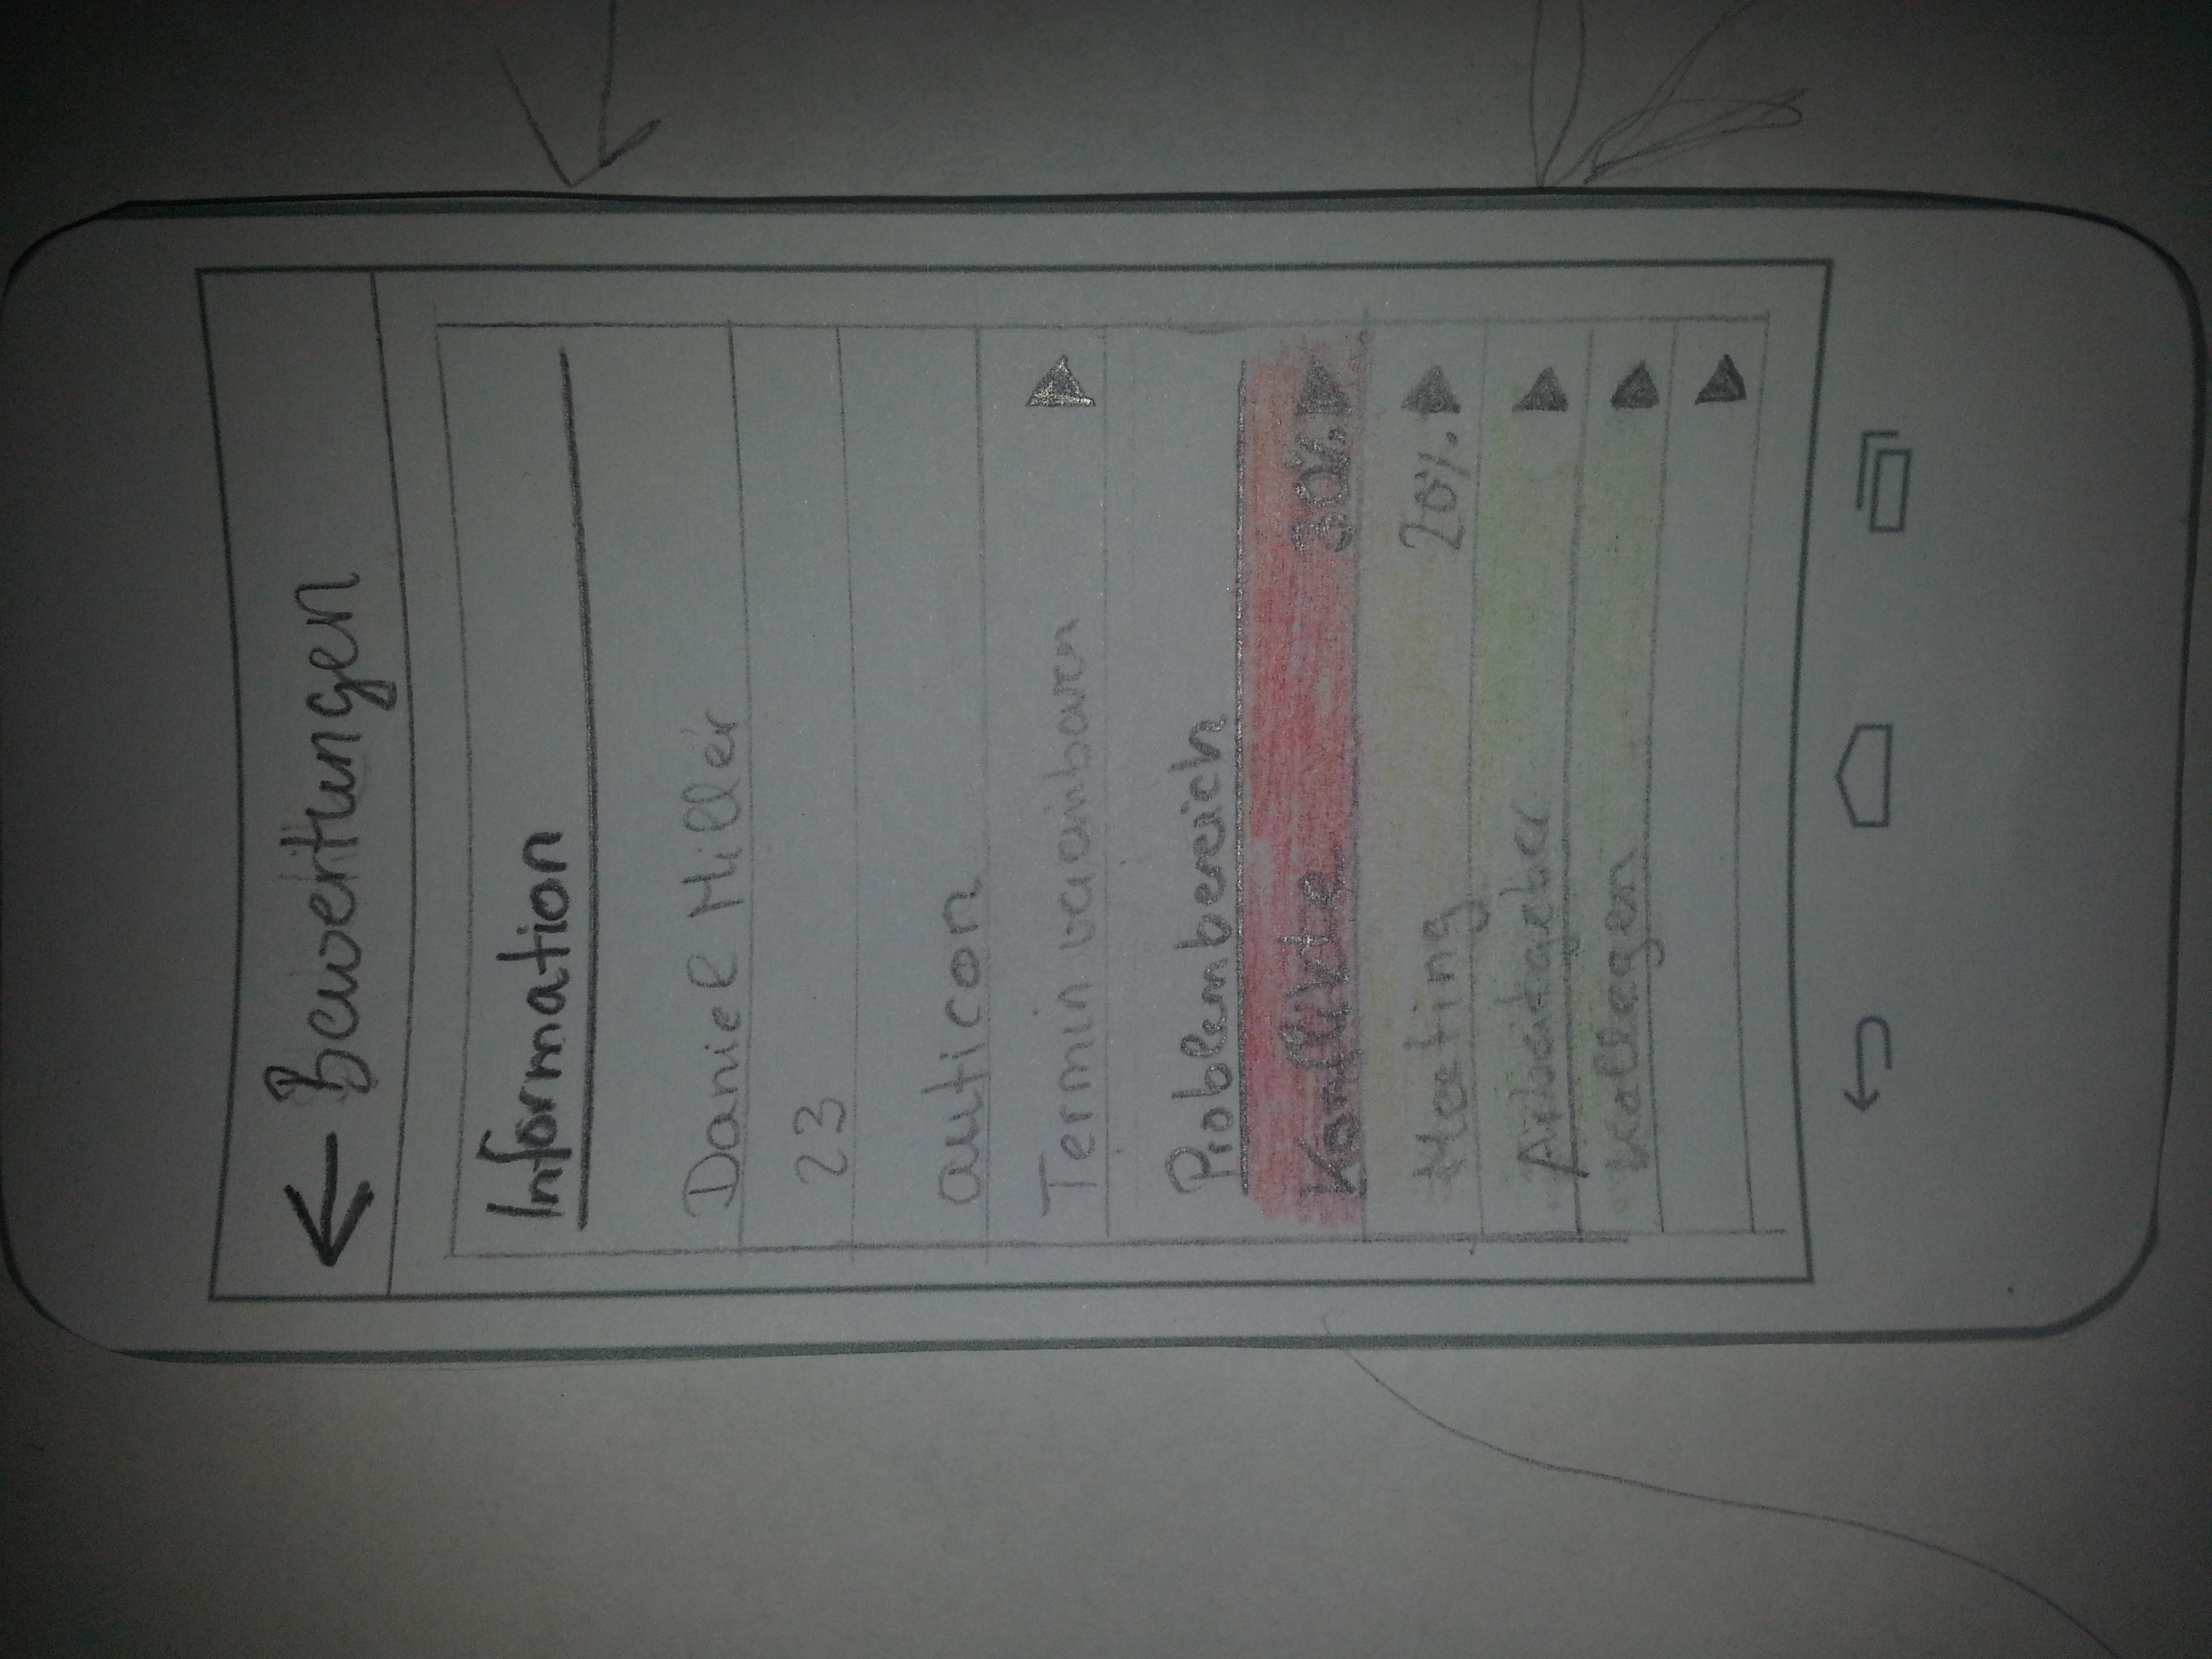 ← Bewertungen
Information
Daniel Miller
23
auticon
Termin vereinbaren
Problembereich
Konflikte 30%
Meeting 20%
Arbeitgeber
Kollegen